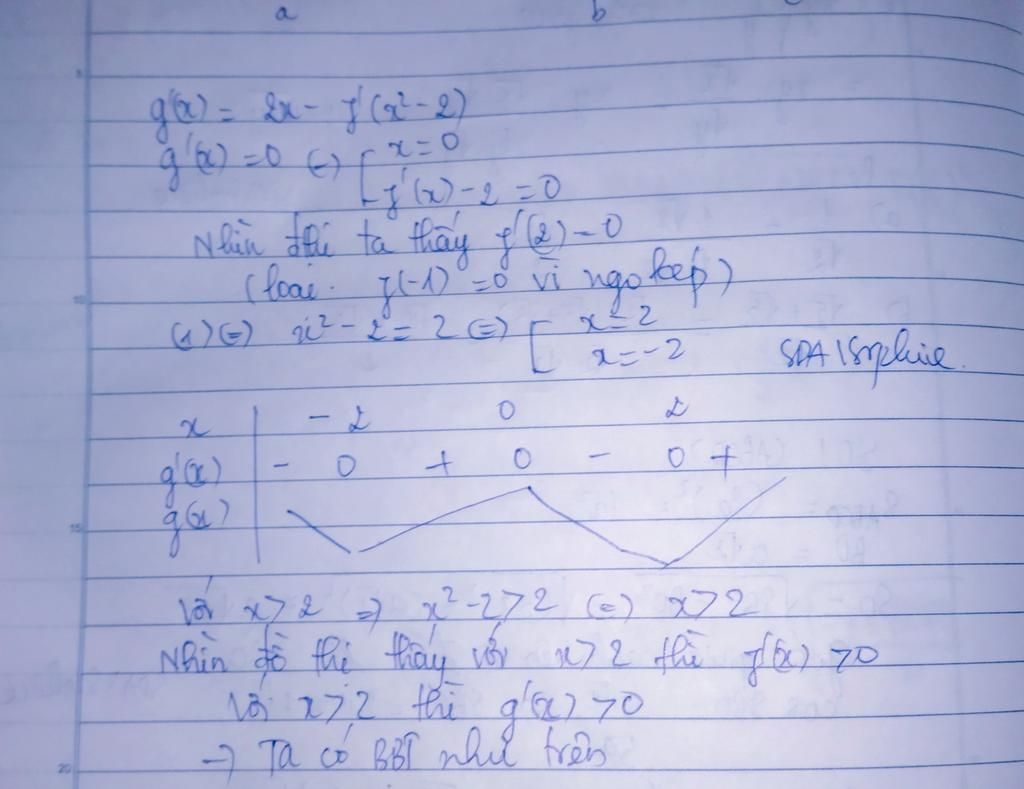 a b
g'(x) = 2x - f'(x² - 2)
g'(x) = 0 (=) [ x = 0
f'(x) - 2 = 0
Nhìn đthị ta thấy f'(2) = 0
(loại f'(-1) = 0 vì ngo kép)
(1) (=) x² - 2 = 2 (=) [ x = 2
x = -2
x -2 0 2
g'(x) - 0 + 0 - 0 +
g(x)
Với x > 2 => x² - 2 > 2 (=) x > 2
Nhìn đồ thị thấy với x > 2 thì f'(x) > 0
Với x > 2 thì g'(x) > 0
→ Ta có BBT như trên